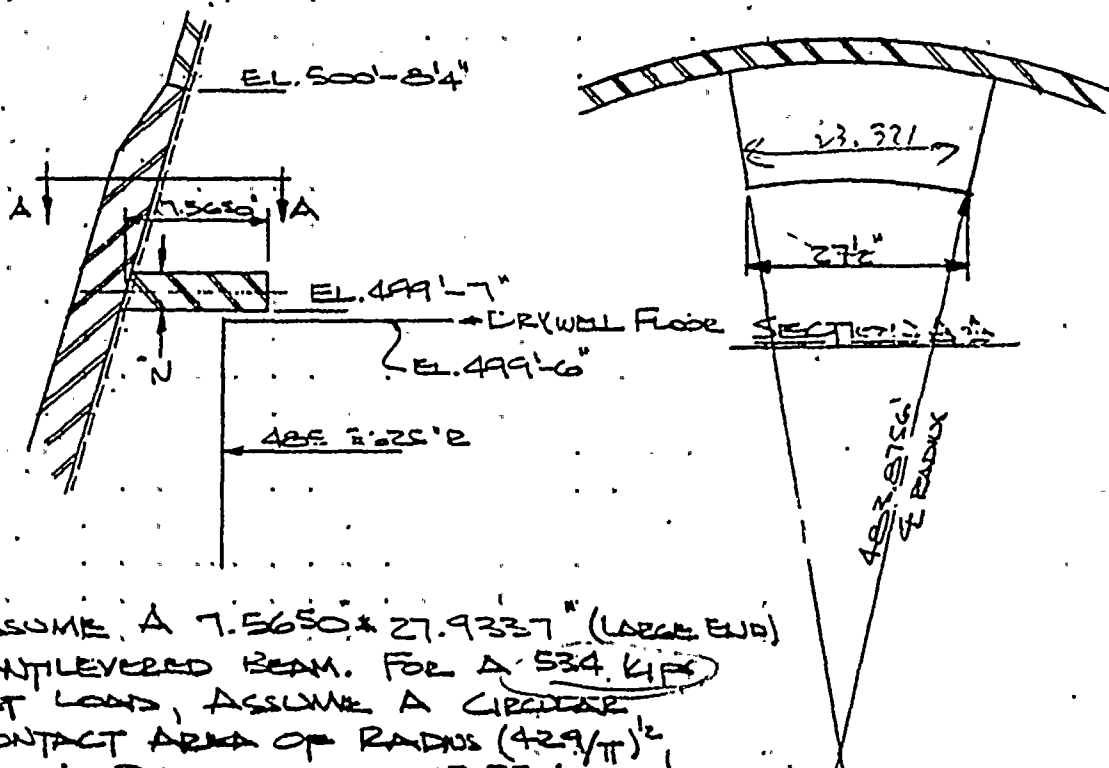 EL. 500'-8¼"
A
A
7.5650"
2"
EL. 499'-7"
DRYWELL FLOOR
EL. 499'-6"
23.321
27½"
SECTION A-A
483.8756'
℄ RADIUS
ASSUME A 7.5650 * 27.9337" (LARGE END)
CANTILEVERED BEAM. FOR A 534 KIPS
LOAD, ASSUME A CIRCULAR
CONTACT AREA OF RADIUS (429/π)^½,